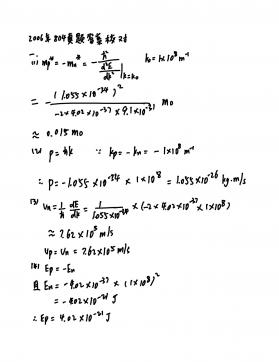 2006年804真题答案核对
一、
(1) mp* = -mn* = - ħ² / (d²E/dk²)|k=k₀   k₀ = 1×10⁸ m⁻¹
= - (1.055×10⁻³⁴)² / (-2×4.02×10⁻³⁷×9.1×10⁻³¹) m₀
≈ 0.015 m₀
(2) P = ħk   ∵ kp = -kn = -1×10⁸ m⁻¹
∴ P = -1.055×10⁻³⁴ × 1×10⁸ = 1.055×10⁻²⁶ kg·m/s
(3) Vn = 1/ħ dE/dk = 1/(1.055×10⁻³⁴) × (-2×4.02×10⁻³⁷×1×10⁸)
≈ 7.62×10⁵ m/s
Vp = Vn = 7.62×10⁵ m/s
(4) Ep = -En
且 En = -4.02×10⁻³⁷ × (1×10⁸)²
= -4.02×10⁻²¹ J
∴ Ep = 4.02×10⁻²¹ J